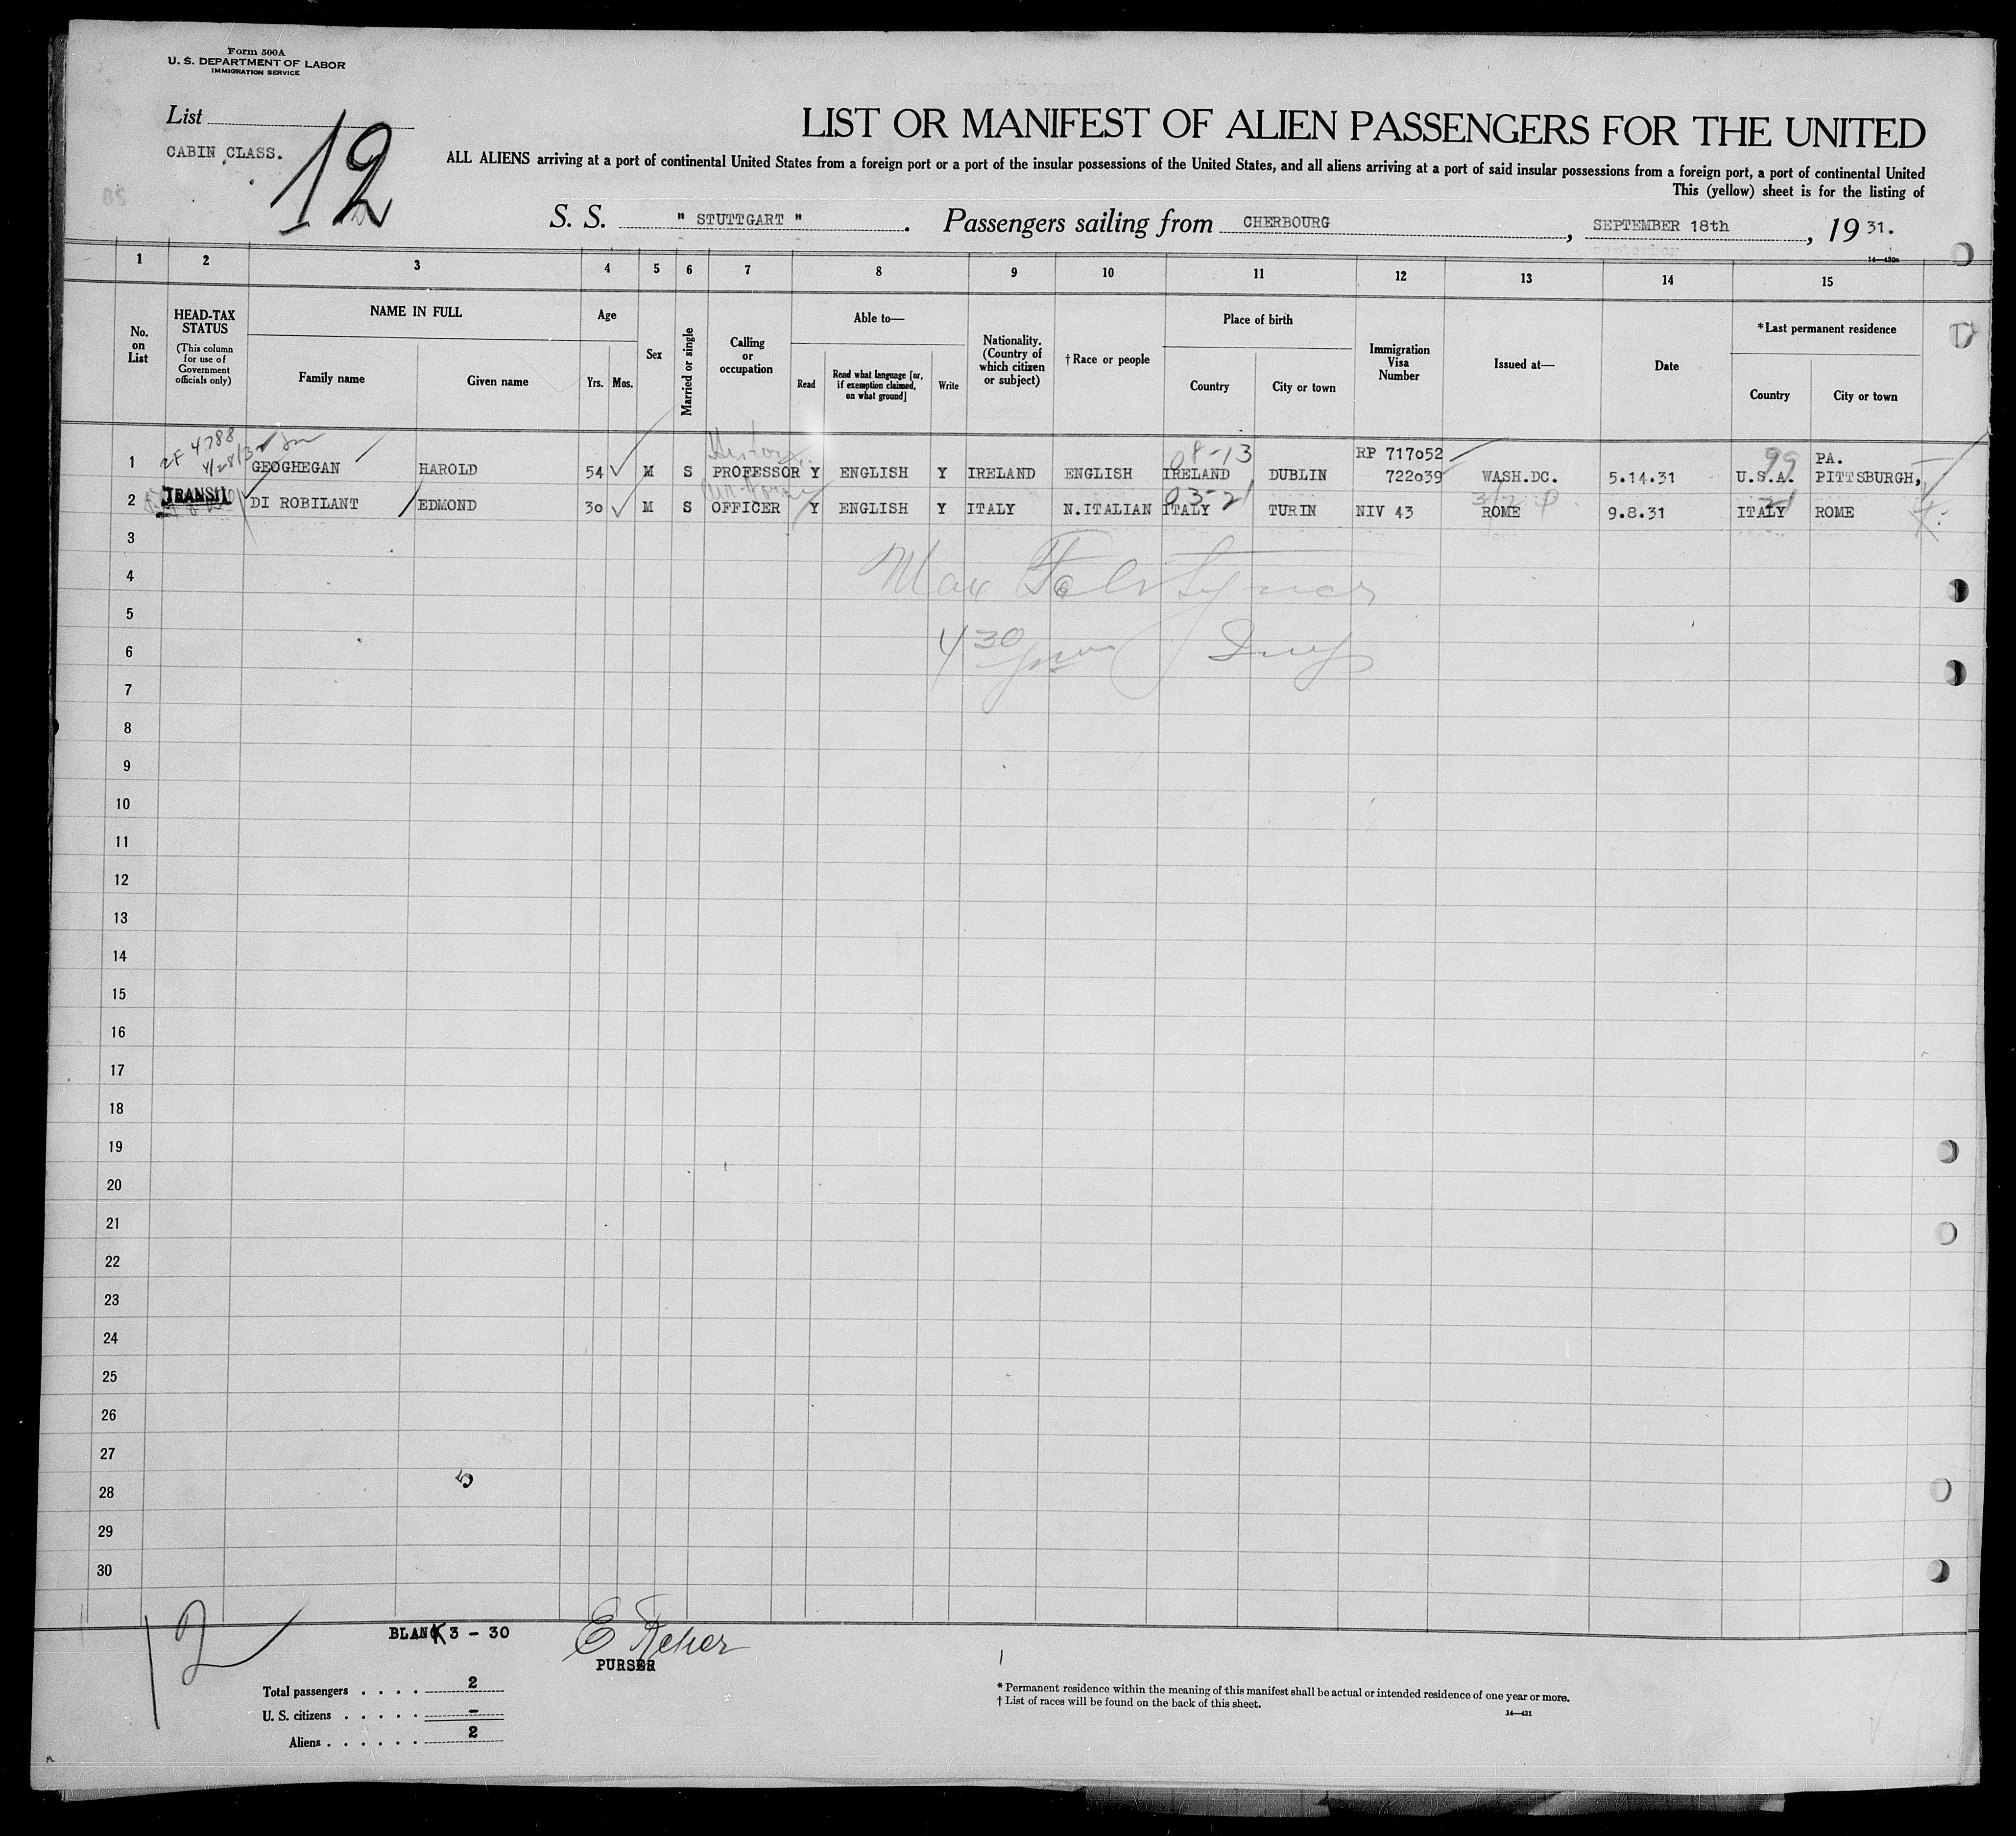 Form 500A
U. S. DEPARTMENT OF LABOR
IMMIGRATION SERVICE
List
12
CABIN CLASS.
LIST OR MANIFEST OF ALIEN PASSENGERS FOR THE UNITED
ALL ALIENS arriving at a port of continental United States from a foreign port or a port of the insular possessions of the United States, and all aliens arriving at a port of said insular possessions from a foreign port, a port of continental United
This (yellow) sheet is for the listing of
S. S. " STUTTGART ". Passengers sailing from CHERBOURG, SEPTEMBER 18th, 1931.
14—430a
1 2 3 4 5 6 7 8 9 10 11 12 13 14 15
No. on List
HEAD-TAX STATUS
(This column for use of Government officials only)
NAME IN FULL
Family name
Given name
Age
Yrs. Mos.
Sex
Married or single
Calling or occupation
Able to—
Read
Read what language [or, if exemption claimed, on what ground]
Write
Nationality. (Country of which citizen or subject)
†Race or people
Place of birth
Country
City or town
Immigration Visa Number
Issued at—
Date
*Last permanent residence
Country
City or town
4788
08-13 RP 717052 99 PA.
1 GEOGHEGAN HAROLD 54 M S PROFESSOR Y ENGLISH Y IRELAND ENGLISH IRELAND DUBLIN 722039 WASH.DC. 5.14.31 U.S.A. PITTSBURGH,
03-21
2 TRANSIT DI ROBILANT EDMOND 30 M S OFFICER Y ENGLISH Y ITALY N.ITALIAN ITALY TURIN NIV 43 ROME 9.8.31 ITALY ROME
3
4
5
6 4 30
7
8
9
10
11
12
13
14
15
16
17
18
19
20
21
22
23
24
25
26
27
28
29
30
5
12
BLANK 3 - 30
PURSER
Total passengers . . . . 2
U. S. citizens . . . . . -
Aliens . . . . . . 2
* Permanent residence within the meaning of this manifest shall be actual or intended residence of one year or more.
† List of races will be found on the back of this sheet.
14—431